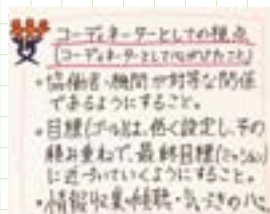 コーディネーターとしての視点
(コーディネーターとして心がけたこと)
・協働者・機関が対等な関係
であるようにすること。
・目標(ゴール)は、低く設定し、その
積み重ねで、最終目標(ミッション)
に近づいていくようにすること。
・情報収集・傾聴・気づきの心